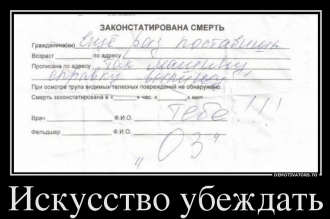 ЗАКОНСТАТИРОВАНА СМЕРТЬ
Гражданина(ки) Ещё раз поставишь
Возраст по адресу
Прописана по адресу так машину
справку выпишу
При осмотре трупа видимых телесных повреждений не обнаружено.
Смерть законстатирована в « » час. « » мин.
тебе!!!
Врач Ф.И.О.
Фельдшер Ф.И.О.
"03"
DEMOTIVATORS.TO
Искусство убеждать